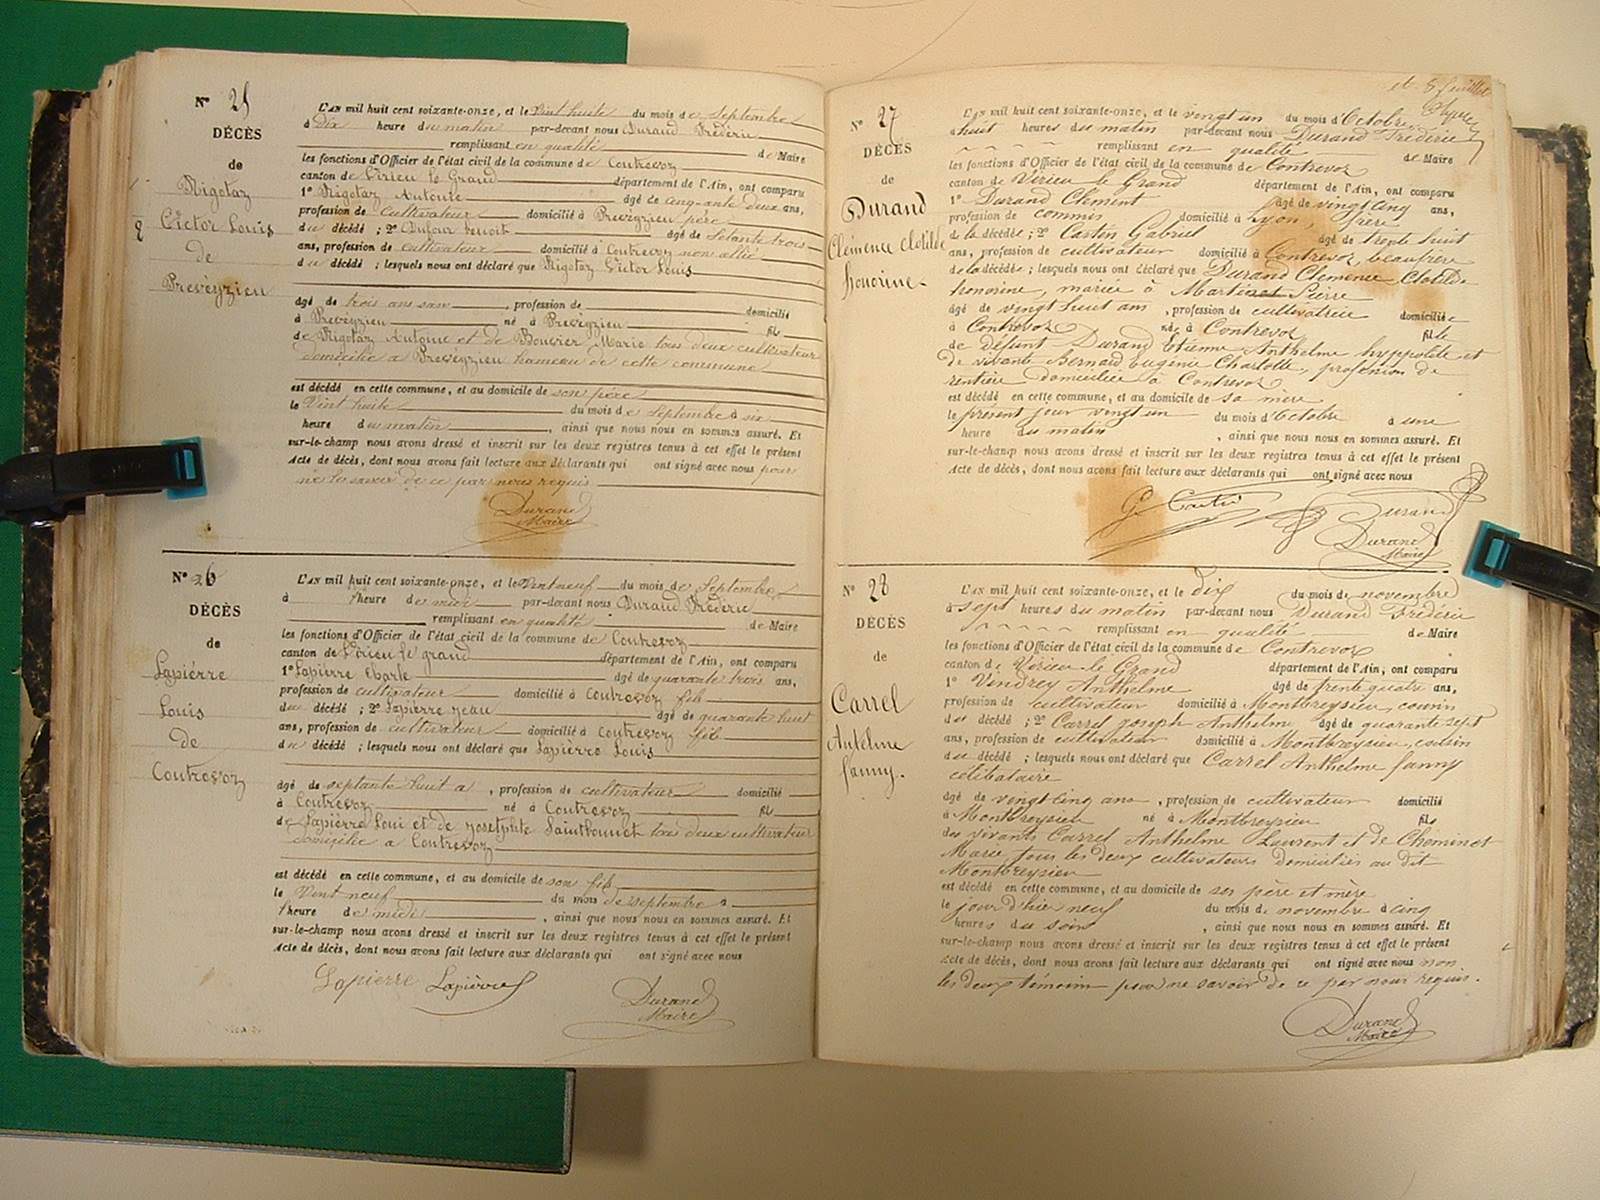 N° 25
DÉCÈS
de
Rigotaz
Victor Louis
de
Preveyzieu
L'AN mil huit cent soixante-onze, et le Vint huite du mois de Septembre
à Dix heure du matin par-devant nous Durand Frédéric
remplissant en qualité de Maire
les fonctions d'Officier de l'état civil de la commune de Contrevoz
canton de Virieu le Grand département de l'Ain, ont comparu
1° Rigotaz Antoine âgé de cinq-ante deux ans,
profession de cultivateur domicilié à Preveyzieu père
du décédé ; 2° Dufour benoit âgé de Setante trois
ans, profession de cultivateur domicilié à Contrevoz non allié
du décédé ; lesquels nous ont déclaré que Rigotaz Victor Louis
âgé de trois ans sans profession de domicilié
à Preveyzieu né à Preveyzieu fils
de Rigotaz Antoine et de Bouvier Marie tous deux cultivateur
domicilie a Preveyzieu hameau de cette commune
est décédé en cette commune, et au domicile de son père
le Vint huite du mois de Septembre à six
heure du matin, ainsi que nous nous en sommes assuré. Et
sur-le-champ nous avons dressé et inscrit sur les deux registres tenus à cet effet le présent
Acte de décès, dont nous avons fait lecture aux déclarants qui ont signé avec nous pour
ne le savoir de ce par nous requis
Durand
Maire
N° 26
DÉCÈS
de
Lapiérre
Louis
de
Contrevoz
L'AN mil huit cent soixante-onze, et le Vint neuf du mois de Septembre
à heure de midi par-devant nous Durand Frédéric
remplissant en qualité de Maire
les fonctions d'Officier de l'état civil de la commune de Contrevoz
canton de Virieu le grand département de l'Ain, ont comparu
1° Lapiérre Charle âgé de quarante trois ans,
profession de cultivateur domicilié à Contrevoz fils
du décédé ; 2° Lapierre jean âgé de quarante huit
ans, profession de cultivateur domicilié à Contrevoz fils
du décédé ; lesquels nous ont déclaré que Lapiérre Louis
âgé de septante huit a, profession de cultivateur domicilié
à Contrevoz né à Contrevoz fils
de Lapiérre Loui et de josephte Saintbonnet tous deux cultivateur
domicilie a Contrevoz
est décédé en cette commune, et au domicile de son fils
le Vint neuf du mois de septembre à
heure de midi, ainsi que nous nous en sommes assuré. Et
sur-le-champ nous avons dressé et inscrit sur les deux registres tenus à cet effet le présent
Acte de décès, dont nous avons fait lecture aux déclarants qui ont signé avec nous
Lapierre Lapièrre
Durand
Maire
et 8 feuillet
N° 27
DÉCÈS
de
Durand
Clémence Clotilde
honorine.
L'AN mil huit cent soixante-onze, et le vingt un du mois d'Octobre
à huit heures du matin par-devant nous Durand Frédéric
remplissant en qualité de Maire
les fonctions d'Officier de l'état civil de la commune de Contrevoz
canton de Virieu le Grand département de l'Ain, ont comparu
1° Durand Clément âgé de vingt cinq ans,
profession de commis domicilié à Lyon, frère
de la décédée ; 2° Cartin Gabriel âgé de trente huit
ans, profession de cultivateur domicilié à Contrevoz, beaufrere
de la décédée ; lesquels nous ont déclaré que Durand Clemence Clotilde
honorine, mariée à Martinet Pierre
âgé de vingt huit ans, profession de cultivatrice domiciliée
à Contrevoz née à Contrevoz fille
de défunt Durand Etienne Anthelme hyppolite et
de vivante Bernard Eugénie Charlotte, profession de
rentière domiciliée à Contrevoz
est décédé en cette commune, et au domicile de sa mère
le présent jour vingt un du mois d'Octobre à une
heure du matin, ainsi que nous nous en sommes assuré. Et
sur-le-champ nous avons dressé et inscrit sur les deux registres tenus à cet effet le présent
Acte de décès, dont nous avons fait lecture aux déclarants qui ont signé avec nous
G. Cartin Durand
Durand
Maire
N° 28
DÉCÈS
de
Carrel
Antelme
fanny.
L'AN mil huit cent soixante-onze, et le dix du mois de novembre
à sept heures du matin par-devant nous Durand Frédéric
remplissant en qualité de Maire
les fonctions d'Officier de l'état civil de la commune de Contrevoz
canton de Virieu-le-Grand département de l'Ain, ont comparu
1° Vindrey Anthelme âgé de trente quatre ans,
profession de cultivateur domicilié à Montbreysieu, cousin
du décédé ; 2° Carrel Joseph Anthelme âgé de quarante sept
ans, profession de cultivateur domicilié à Montbreysieu, cousin
du décédé ; lesquels nous ont déclaré que Carrel Anthelme fanny
célibataire
âgé de vingt cinq ans, profession de cultivateur domicilié
à Montbreysieu né à Montbreysieu fils
des vivants Carrel Anthelme Laurent et de Cheminot
Marie tous les deux cultivateurs domiciliés au dit
Montbreysieu
est décédé en cette commune, et au domicile de ses père et mère
le jour d'hier neuf du mois de novembre à cinq
heures du soir, ainsi que nous nous en sommes assuré. Et
sur-le-champ nous avons dressé et inscrit sur les deux registres tenus à cet effet le présent
Acte de décès, dont nous avons fait lecture aux déclarants qui ont signé avec nous non
les deux témoins pour ne savoir de ce par nous requis.
Durand
Maire